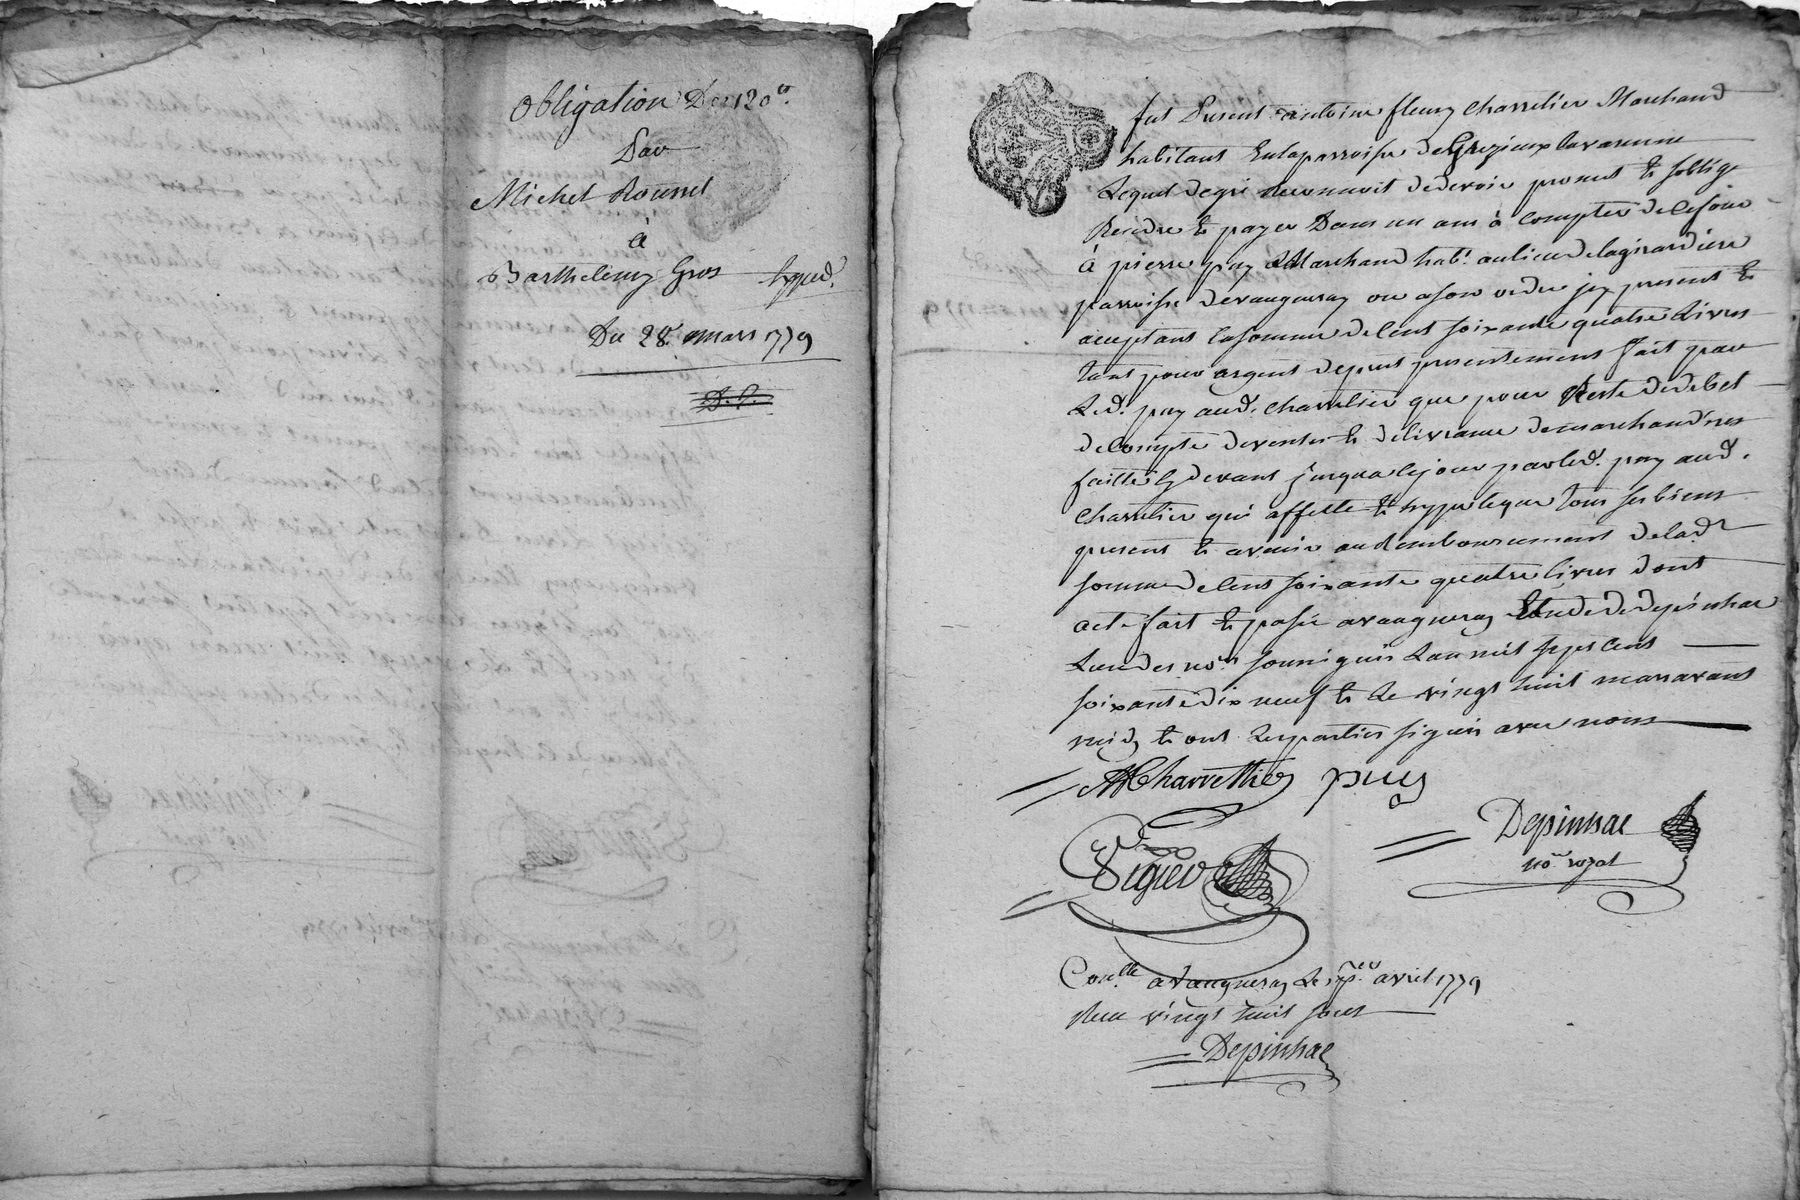 Obligation De 120ᵗᵗ.
Par
Michel Roussel
à
Barthelemy Gros hyped.
Du 28. mars 1779
fut Present antoine fleury charretier Marchand
habitant En la parroisse de Grezieux lavarenne
Lequel de gré reconnoit de devoir promet et s'oblige
Rendre et payer Dans un an à compter de ce jour
à pierre puy Marchand habt. au lieu de la girardiere
parroisse de vaugneray ou a son ordre jcy present et
acceptant la somme de Cent soixante quatre Livres
tant pour argent de pret presentement fait par
Led. puy aud. charretier que pour Reste de debet
de Compte de ventes et delivrance de marchandises
faitte cy devant jusqua ce jour par led. puy aud.
charretier qui affecte et hypoteque tous ses biens
present et avenir au Remboursement de lad.
somme de Cent soixante quatre livres dont
acte fait et passé a vaugneray Etude de depinhac
L'un des nores. soussignés L'an mil sept Cent
soixante dix neuf et Le vingt huit mars avant
midy et ont Les parties signés avec nous
A F Charrettier puy
Depinhac
nore royal
Viguier
Conlle. a vaugneray Le pr. avril 1779
Reçu vingt huit sous
Depinhac